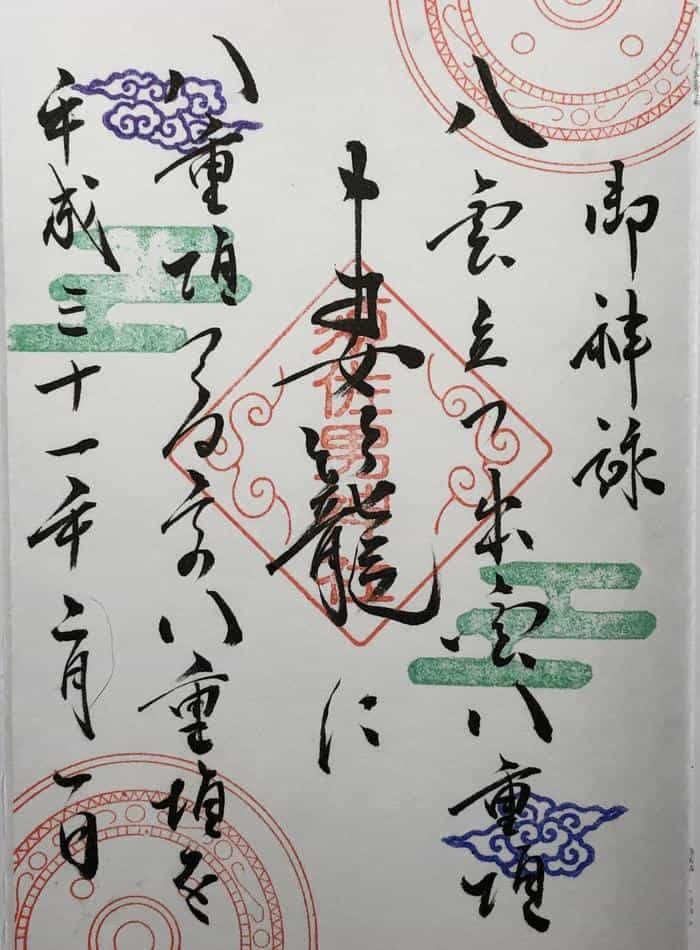 御神詠
八雲立つ出雲八重垣
妻籠に
八重垣つくるその八重垣を
平成三十一年二月一日
須佐男神社